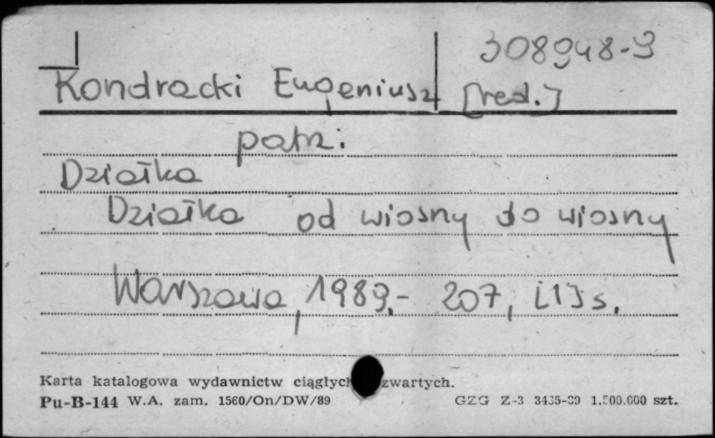 308948-9
Kondracki Eugeniusz [red.]
patrz:
Działka
Działka od wiosny do wiosny
Warszawa, 1989.- 207, [1] s.
Karta katalogowa wydawnictw ciągłych zwartych.
Pu-B-144 W.A. zam. 1560/On/DW/89 GZG Z-3 3435-89 1.500.000 szt.